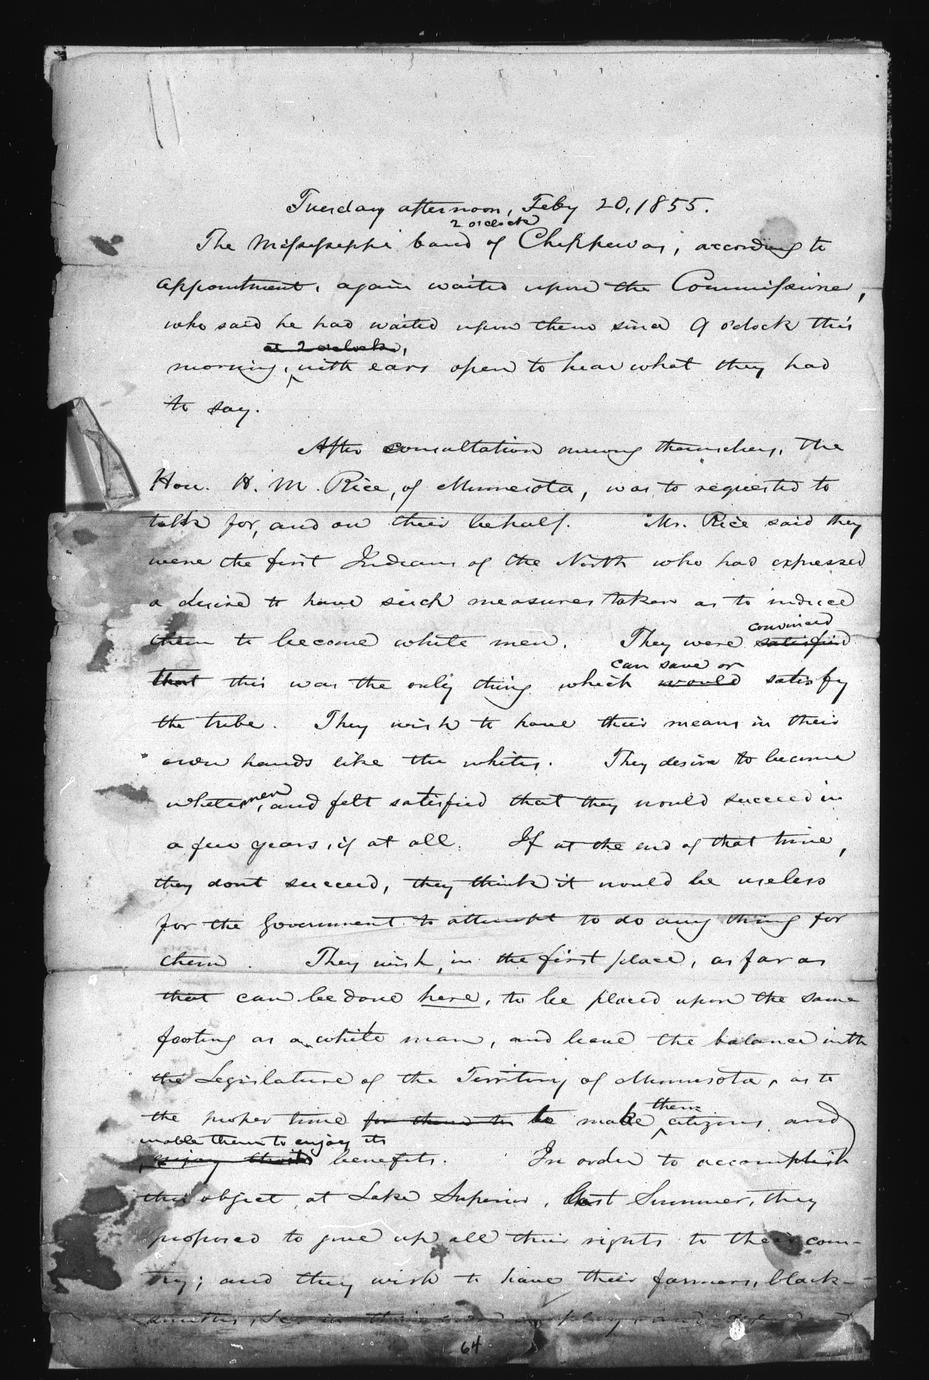 Tuesday afternoon, Feby 20, 1855.
2 o'clock
The Mississippi band of Chippewas, according to
appointment, again waited upon the Commissioner,
who said he had waited upon them since 9 o'clock this
at 2 o'clock,
morning, with ears open to hear what they had
to say.
After consultation among themselves, the
Hon. H. M. Rice, of Minnesota, was to requested to
talk for, and on their behalf. Mr. Rice said they
were the first Indians of the North who had expressed
a desire to have such measures taken as to induce
convinced
them to become white men. They were satisfied
can save or
that this was the only thing which would satisfy
the tribe. They wish to have their means in their
own hands like the whites. They desire to become
white men, and felt satisfied that they would succeed in
a few years, if at all. If at the end of that time,
they dont succeed, they think it would be useless
for the Government to attempt to do any thing for
them. They wish, in the first place, as far as
that can be done here, to be placed upon the same
footing as a white man, and leave the balance with
the Legislature of the Territory of Minnesota, as to
them
the proper time for them to to make citizens and
enable them to enjoy its
enjoy their benefits. In order to accomplish
this object, at Lake Superior, last Summer, they
proposed to give up all their rights to their coun-
try; and they wish to have their farmers, black-
smiths, &c in their own employ, and
64